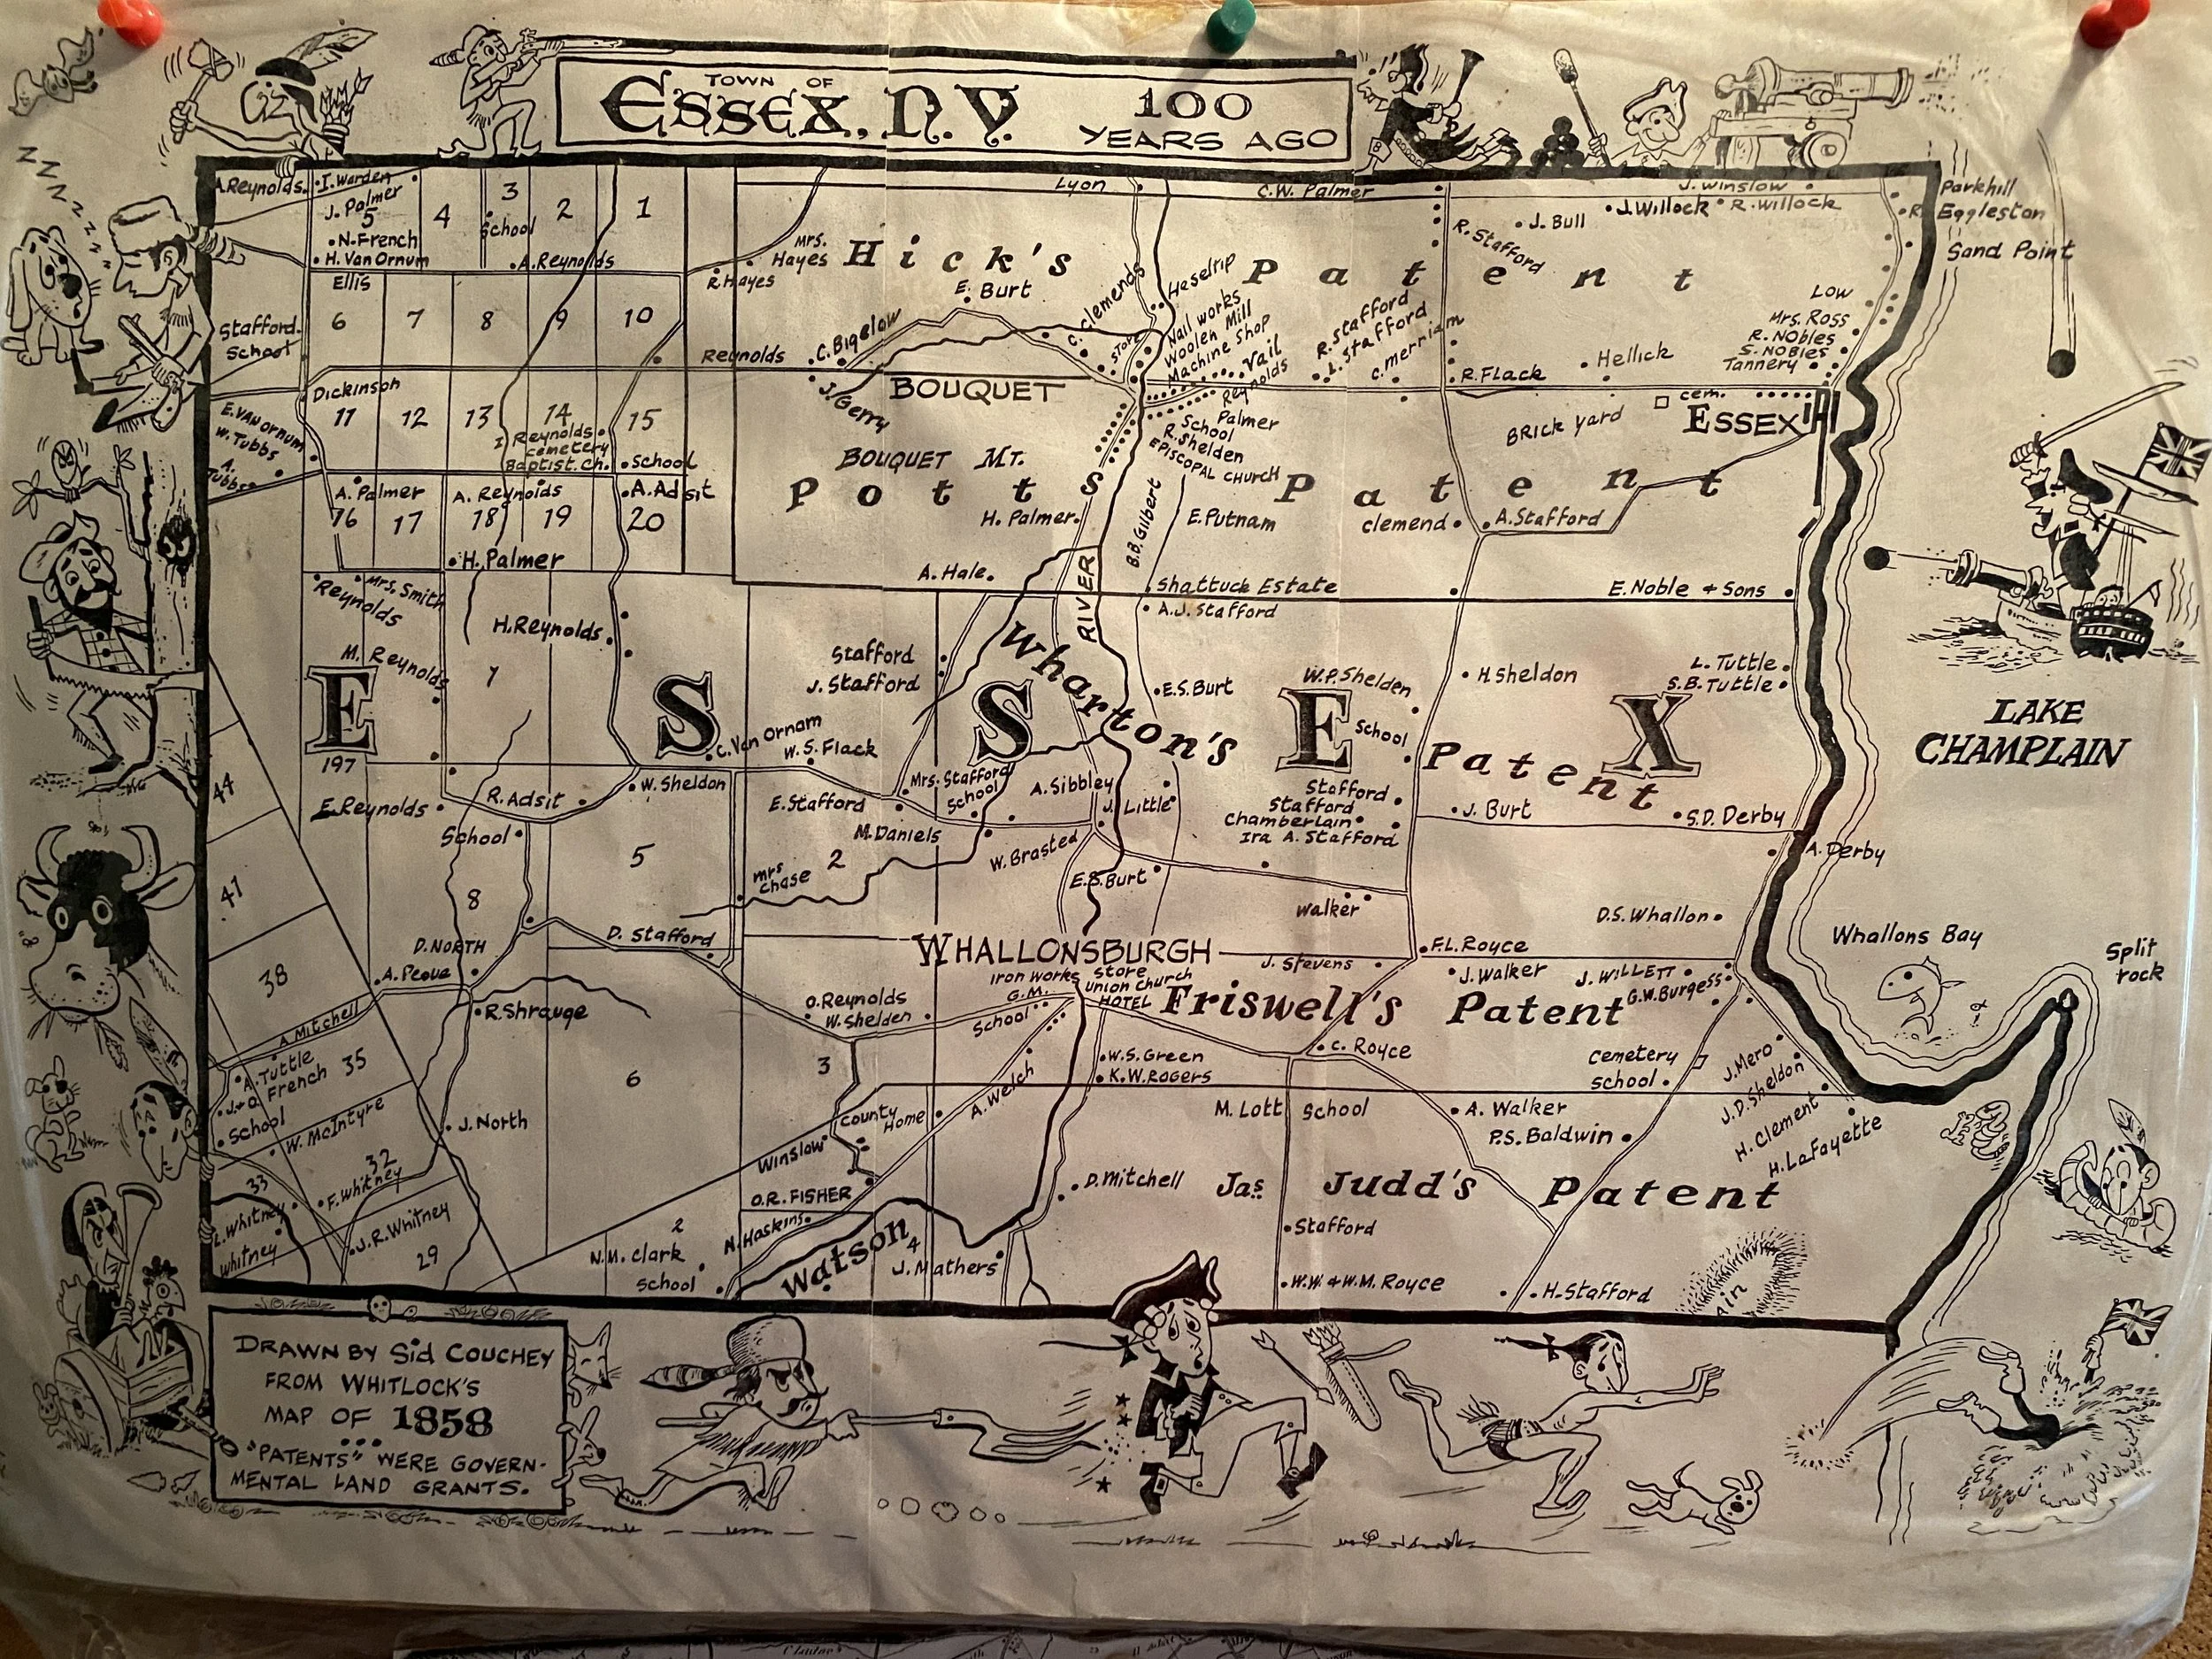 TOWN OF
ESSEX, N.Y.
100
YEARS AGO
ZZZZZZZZ
A. Reynolds
I. Warden
J. Palmer
5
4
3
School
2
1
N. French
H. Van Ornum
A. Reynolds
Lyon
C.W. Palmer
J. Winslow
J. Bull
J. Willock
R. Willock
Parkhill
R. Eggleston
Sand Point
R. Stafford
Mrs.
Hayes
R. Hayes
Hick's Patent
Ellis
6
7
8
9
10
Stafford
School
Reynolds
E. Burt
C. Bigelow
J. Gerry
C. Clemends
Haseltip
Store
Nail works
Woolen Mill
Machine Shop
Vail
Reynolds
R. Stafford
L. Stafford
C. Merriam
R. Flack
Hellick
Low
Mrs. Ross
R. Nobles
S. Nobles
Tannery
BOUQUET
Palmer
School
R. Shelden
EPISCOPAL CHURCH
cem.
ESSEX
BRICK YARD
Dickinson
11
12
13
14
15
I Reynolds
cemetery
Baptist. Ch.
School
E. VAN ORNUM
W. Tubbs
A. Tubbs
BOUQUET MT.
Potts Patent
A. Palmer
A. Reynolds
A. Adsit
16
17
18
19
20
H. Palmer
H. Palmer
B.B. Gilbert
E. Putnam
Clemend
A. Stafford
A. Hale.
RIVER
Shattuck Estate
A.J. Stafford
E. Noble & Sons
Mrs. Smith
Reynolds
H. Reynolds
M. Reynolds
7
Stafford
J. Stafford
Wharton's Patent
E.S. Burt
W.P. Shelden
School
H. Sheldon
L. Tuttle
S.B. Tuttle
ESSEX
LAKE
CHAMPLAIN
197
C. Van Ornam
W.S. Flack
E. Reynolds
R. Adsit
W. Sheldon
Mrs. Stafford
School
A. Sibbley
J. Little
E. Stafford
M. Daniels
W. Brasted
E.S. Burt
Stafford
Stafford
Chamberlain
Ira A. Stafford
J. Burt
S.D. Derby
A. Derby
44
41
38
School
5
2
Mrs
Chase
8
Walker
D.S. Whallon
D. NORTH
D. Stafford
WHALLONSBURGH
J. Stevens
F.L. Royce
J. Walker
J. WILLETT
G.W. Burgess
Whallons Bay
Split
rock
Iron Works
Store
Union Church
G.M.
HOTEL
School
Friswell's Patent
R. Shrauge
O. Reynolds
W. Shelden
A. Mitchell
A. Tuttle
J. & O. French
School
35
6
3
W.S. Green
K.W. ROGERS
C. Royce
Cemetery
School
J. Mero
J.D. Sheldon
H. Clement
H. LaFayette
W. McIntyre
J. North
County
Home
A. Welch
M. Lott
School
A. Walker
P.S. Baldwin
Winslow
33
32
F. Whitney
L. Whitney
Whitney
J.R. Whitney
29
O.R. FISHER
D. Mitchell
Jas. Judd's Patent
N. Haskins
2
N.M. Clark
School
Watson
4
J. Mathers
Stafford
W.W. & W.M. Royce
H. Stafford
DRAWN BY Sid COUCHEY
FROM WHITLOCK'S
MAP OF 1858
"PATENTS" WERE GOVERN-
MENTAL LAND GRANTS.